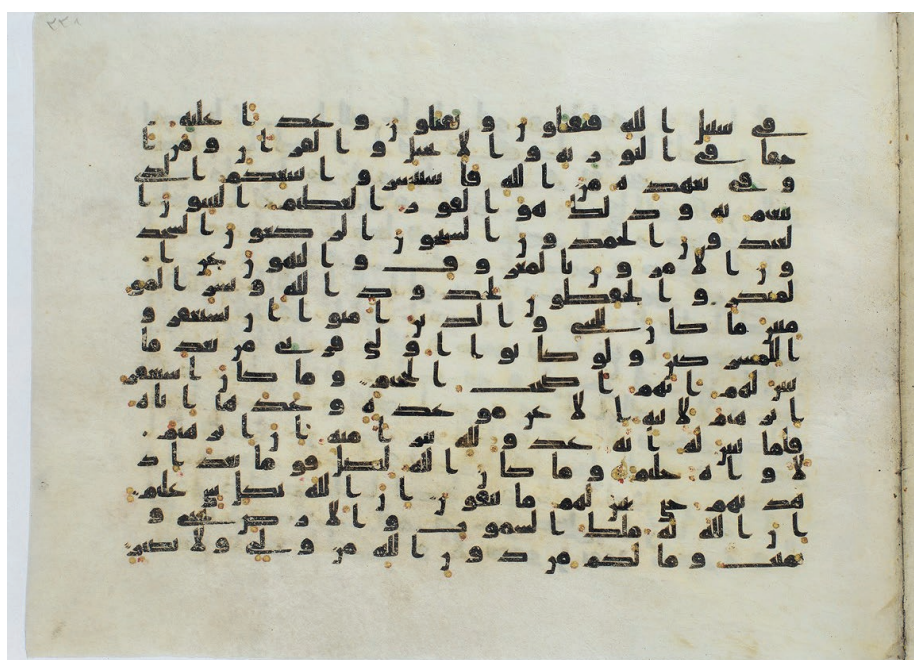 في سبيل الله فيقتلون ويقتلون وعدا عليه
حقا في التورية والانجيل والقران ومن ا
وفى بعهده من الله فاستبشروا ببيعكم الذي
بيعتم به وذلك هو الفوز العظيم التئبون ا
لعبدون الحمدون السئحون الركعون السجد
ون الامرون بالمعروف والناهون عن ا
لمنكر والحفظون لحدود الله وبشر المؤ
منين ما كان للنبي والذين امنوا ان يستغفروا
للمشركين ولو كانوا اولي قربى من بعد ما
تبين لهم انهم اصحب الجحيم وما كان استغفر
ابرهيم لابيه الا عن موعدة وعدها اياه
فلما تبين له انه عدو لله تبرا منه ان ابرهيم
لاواه حليم وما كان الله ليضل قوما بعد اذ
هديهم حتى يبين لهم ما يتقون ان الله بكل شي عليم
ان الله له ملك السموت والارض يحيي و
يميت وما لكم من دون الله من ولي ولا نصير